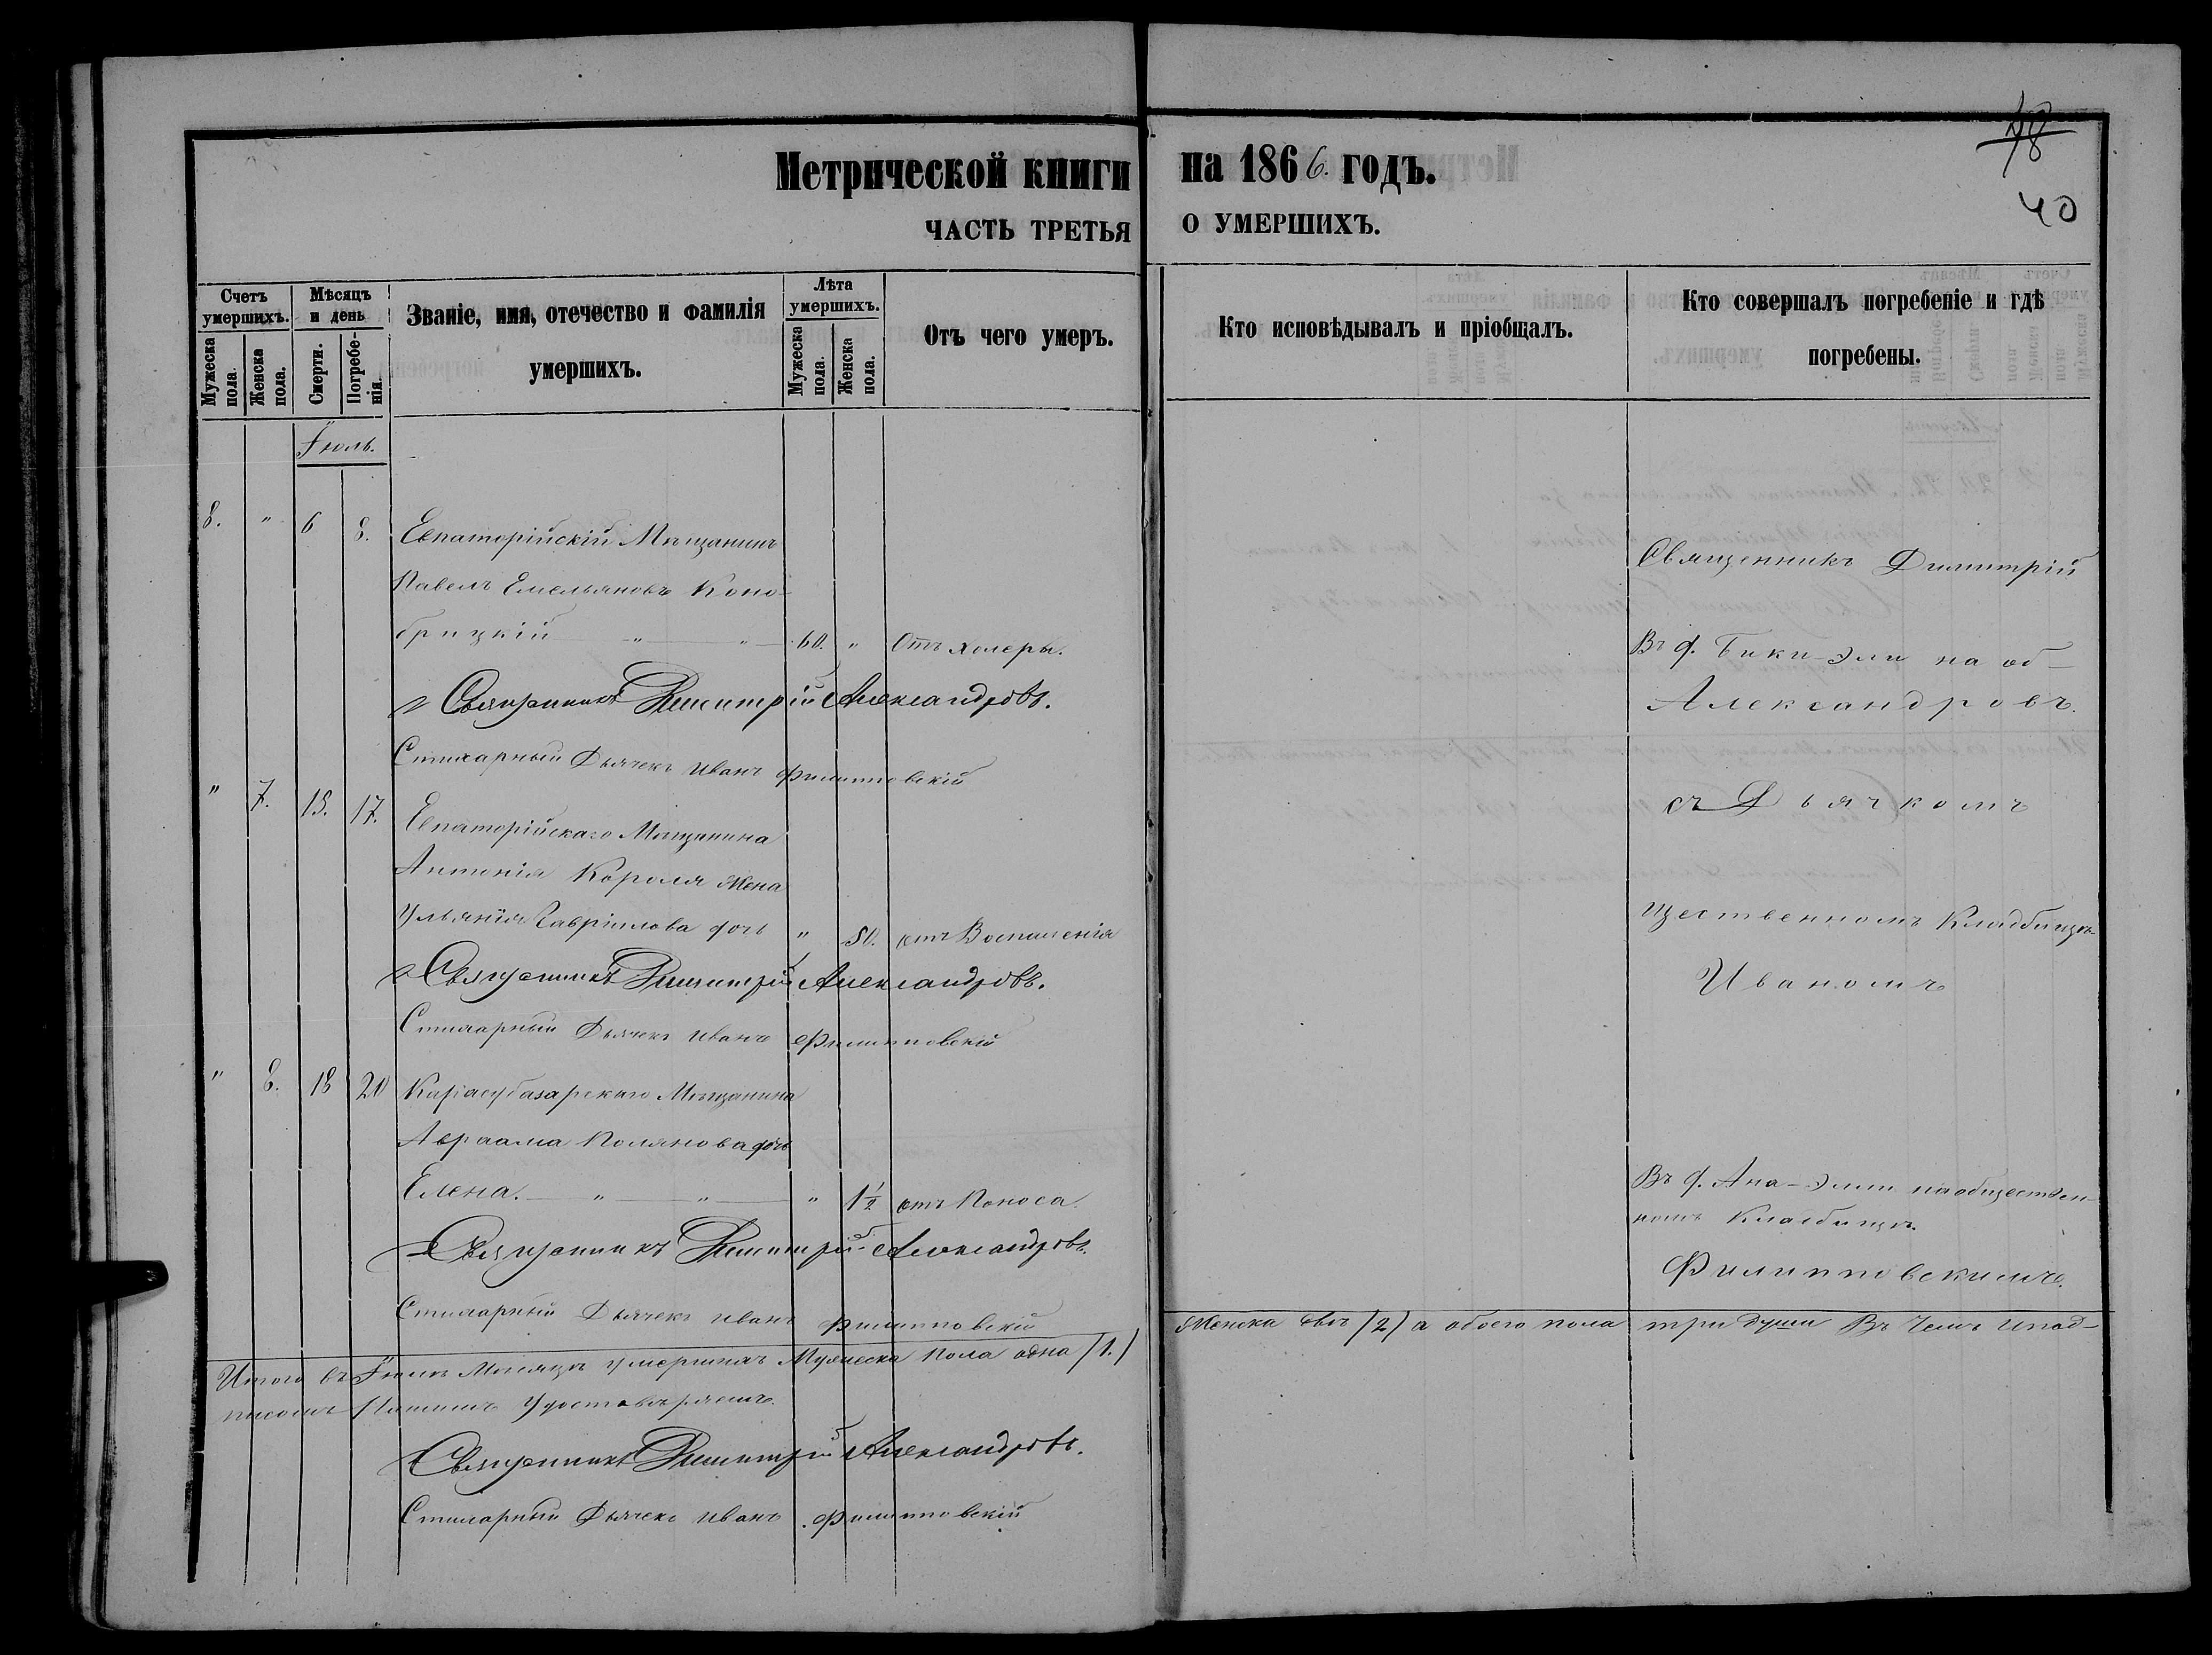 Метрической книги на 1866. годъ.
ЧАСТЬ ТРЕТЬЯ О УМЕРШИХЪ.
40
Счетъ умершихъ.
Мужеска пола.
Женска пола.
Мѣсяцъ и день
Смерти.
Погребенія.
Званіе, имя, отечество и фамилія умершихъ.
Лѣта умершихъ.
Мужеска пола.
Женска пола.
Отъ чего умеръ.
Кто исповѣдывалъ и пріобщалъ.
Кто совершалъ погребеніе и гдѣ погребены.
Іюль.
8. " 6 8. Евпаторійскій Мѣщанинъ
Павелъ Емельяновъ Коно-
брицкій " " 60. " Отъ холеры.
Священникъ Димитрій Александровъ.
Стихарный Дьячекъ Иванъ Филипповскій
" 7. 15. 17. Евпаторійскаго Мѣщанина
Антонія Короля Жена
Ульянія Гавріилова дочь " 50. отъ Воспаленія
Священникъ Димитрій Александровъ.
Стихарный Дьячекъ Иванъ Филипповскій
" 8. 18 20 Карасубазарскаго Мѣщанина
Авраама Полянова дочь
Елена. " " " 1½ отъ Поноса.
Священникъ Димитрій Александровъ.
Стихарный Дьячекъ Иванъ Филипповскій
Священникъ Димитрій
Въ д. Бики-Эли на об-
Александровъ.
съ Дьячкомъ
щественномъ Кладбищѣ
Иваномъ
Въ д. Ана-Эли на обществен-
номъ Кладбищѣ.
Филипповскимъ.
Итого въ Іюлѣ Мѣсяцѣ умершихъ Мужеска Пола одна /1./ Женска двѣ /2/ а обоего пола три души Въ Чемъ и под-
писомъ Нашимъ Удостовѣряемъ.
Священникъ Димитрій Александровъ.
Стихарный Дьячекъ Иванъ Филипповскій